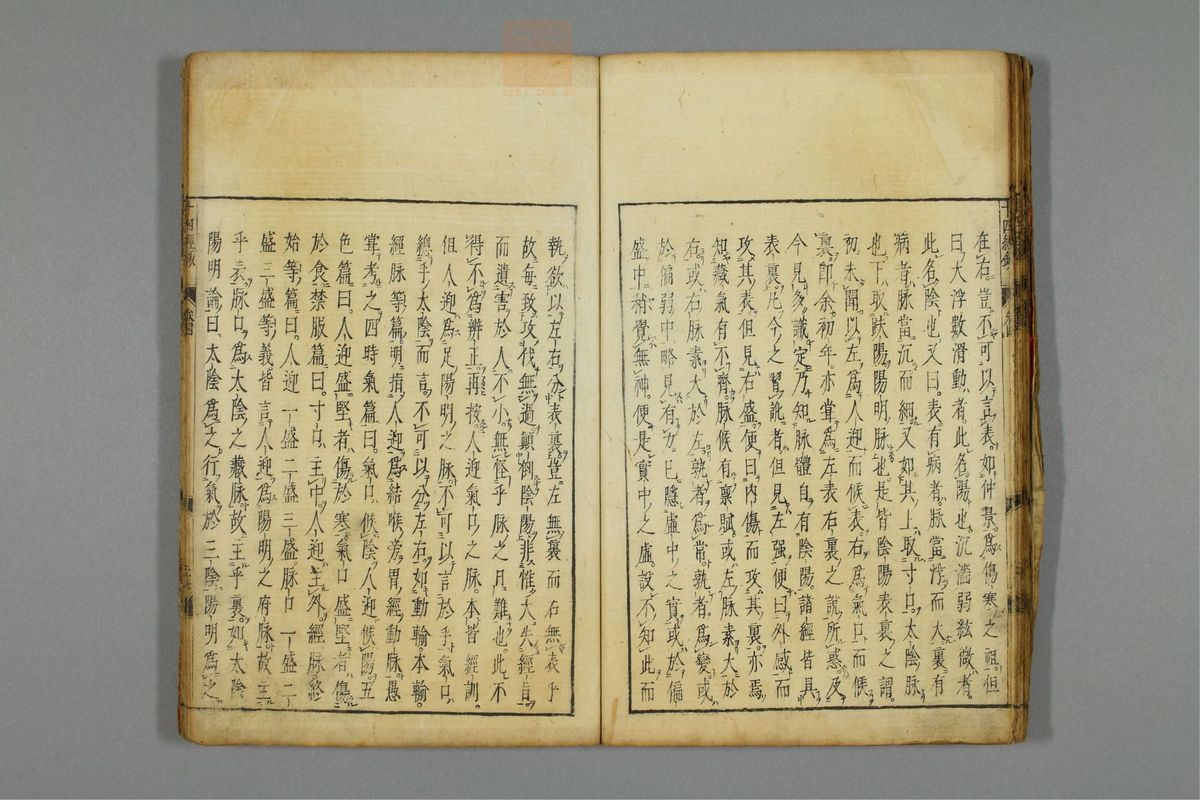 在右豈不可以言表如仲景爲傷寒之祖但
曰大浮數滑動者此名陽也沉濇弱絃微者
此名陰也又曰表有病者脉當浮而大裏有
病者脉當沉而細又如其上取寸口太陰脉
也下取趺陽陽明脉也是皆陰陽表裏之謂
初未聞以左爲人迎而候表右爲氣口而候
裏即余初年亦嘗爲左表右裏之說所惑及
今見多識定乃知脉體自有陰陽諸經皆具
表裏凡今之習訛者但見左强便曰外感而
攻其表但見右盛便曰內傷而攻其裏亦焉
知藏氣有不齊脉候有禀賦或左脉素大於
右或右脉素大於左孰者爲常孰者爲變或
於偏弱中略見有力已隱虛中之實或於偏
盛中稍覺無神便是實中之虛設不知此而
執欲以左右分表裏豈左無裏而右無表乎
故每致攻伐無過顛倒陰陽非惟大失經旨
而遺害於人不小無怪乎脉之日難也此不
得不爲辨正再按人迎氣口之脉本皆經訓
但人迎爲足陽明之脉不可以言於手氣口
總手太陰而言不可以分左右如動輸本輸
經脉等篇明指人迎爲結喉旁胃經動脉愚
嘗考之四時氣篇曰氣口候陰人迎候陽五
色篇曰人迎盛堅者傷於寒氣口盛堅者傷
於食禁服篇曰寸口主中人迎主外經脉終
始等篇曰人迎一盛二盛三盛脉口一盛二
盛三盛等義皆言人迎爲陽明之府脉故主
乎表脉口爲太陰之藏脉故主乎裏如太陰
陽明論曰太陰爲之行氣於三陰陽明爲之